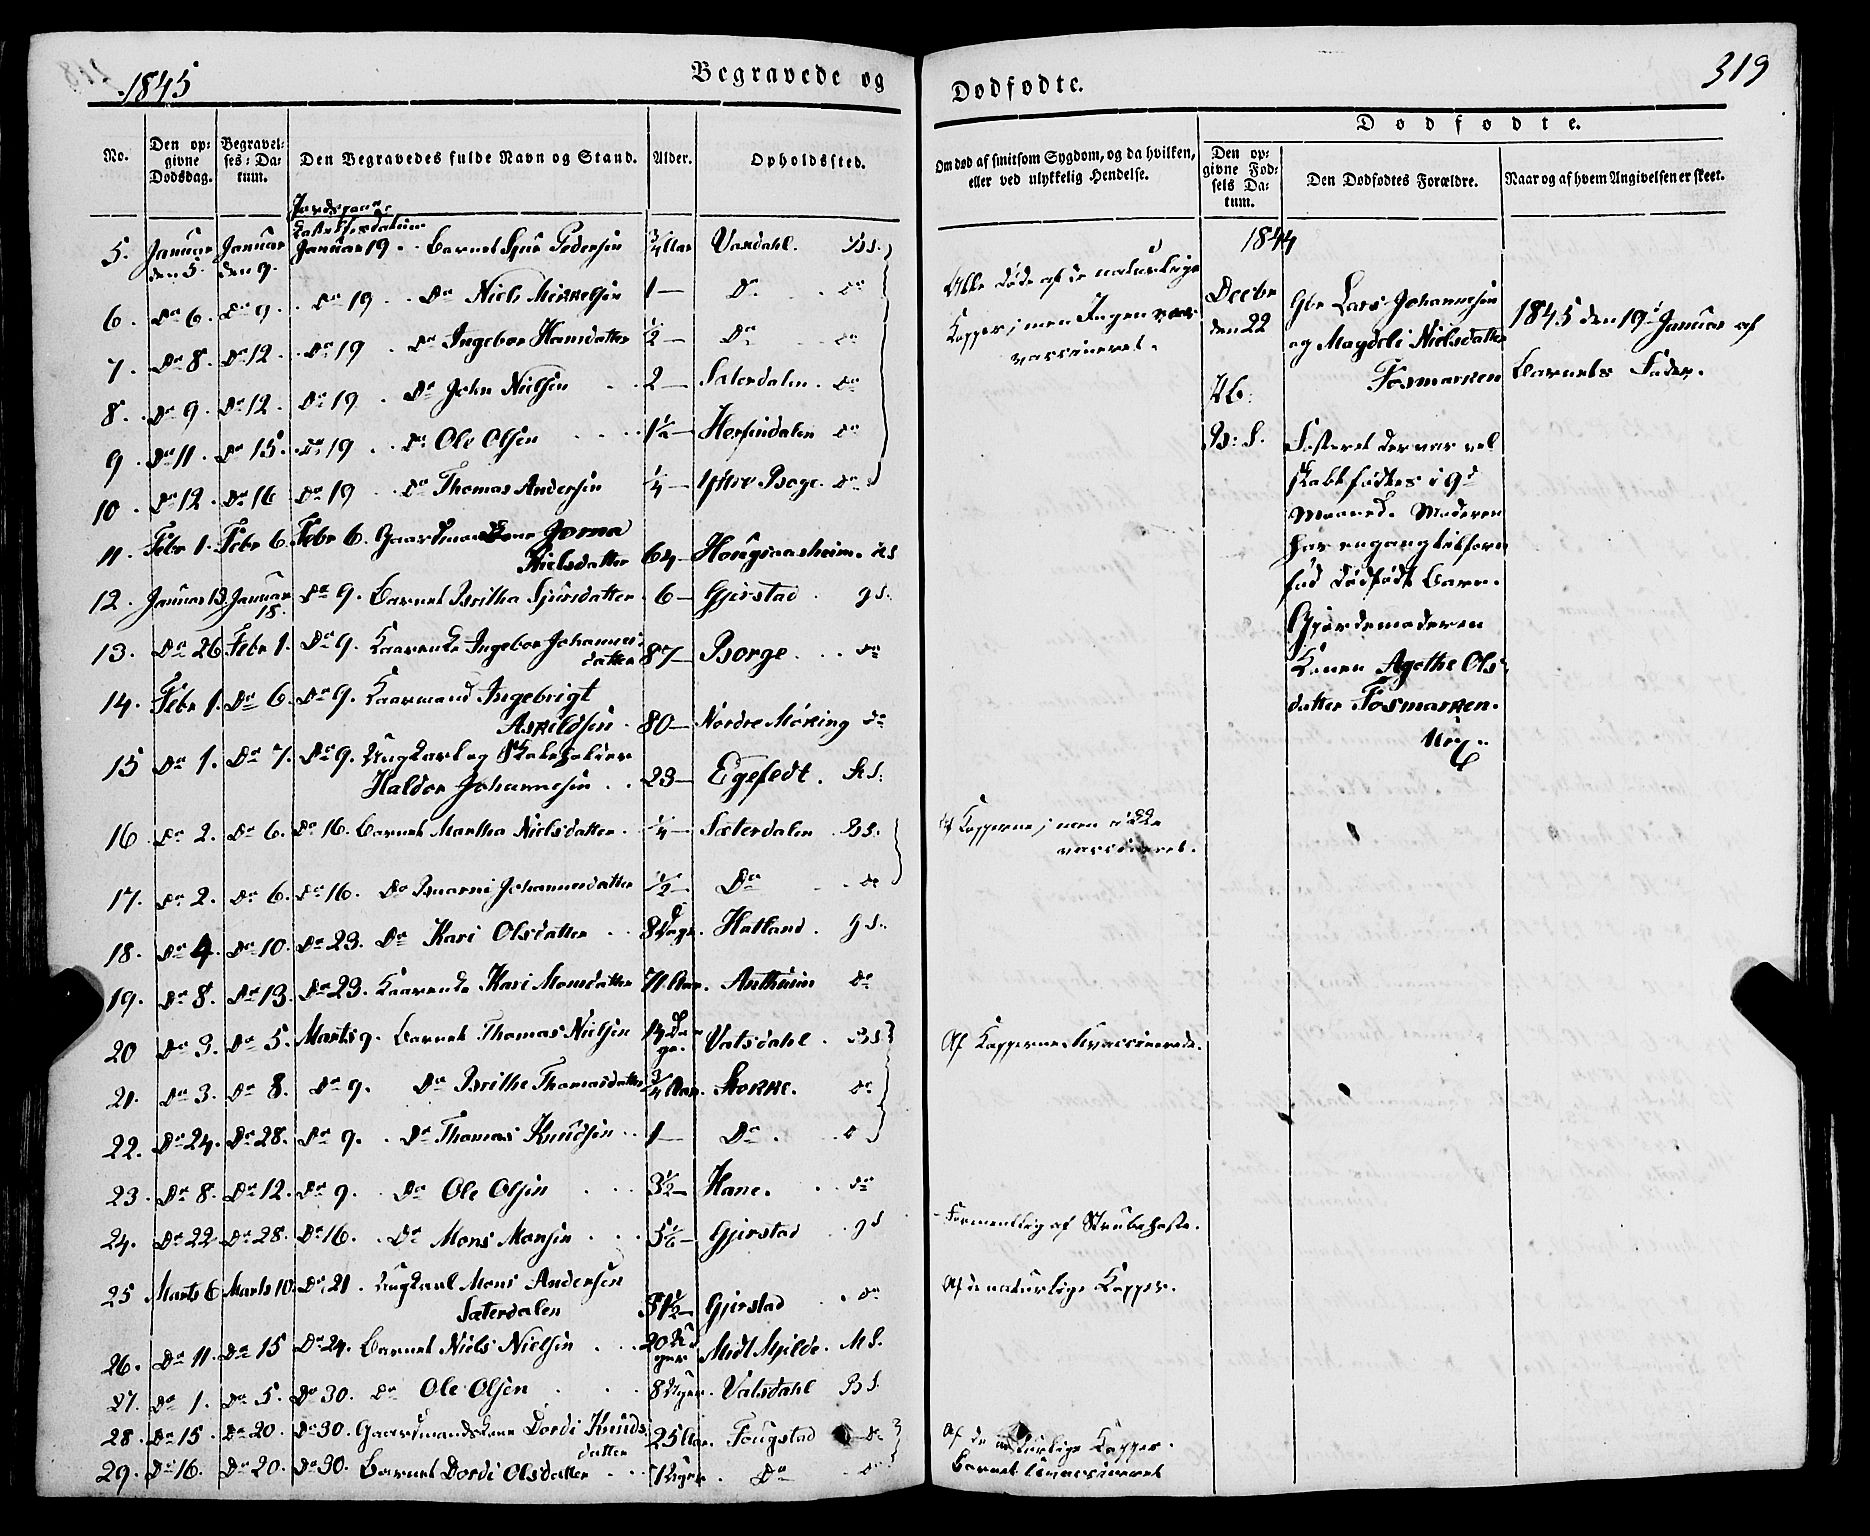 1845
Begravede og
No.
Den op-
givne
Dødsdag.
Begravel-
ses-Da-
tum.
Den Begravedes fulde Navn og Stand.
Alder.
Opholdssted.
5. Januar den 5. Januar den 9. Januar 19. Barnet Sjur Pedersen 3/4 Aar Vardahl. Bs.
6. Do 6. Do 9. Do 19. Do Niels Mikkelsen 1 — Do Do
7. Do 8. Do 12. Do 19 Do Ingebor Hansdatter 1/2 — Do Do
8. Do 9. Do 12. Do 19 Do John Nielsen 2 — Saterdalen. Do
9. Do 11. Do 15. Do 19 Do Ole Olsen 1 1/2 — Herfindalen Do
10. Do 12. Do 16 Do 19 Do Thomas Andersen 1/4 — Ystre Boge. Do
11. Febr 1. Febr 6. Febr 6. Gaardmandskone Gorna
Nielsdatter 64 — Hougsansheim.
12. Januar 13. Januar 18. Do 9. Barnet Britha Sjursdatter 6 — Gjerstad. gS.
13. Do 26 Febr 1. Do 9. Kaarenke Ingebor Johannes-
datter 87 — Borge. Do
14. Febr 1. Do 6. Do 9. Kaarmand Ingebrigt
Askildsen 80 — Nordre Møking Do
15 Do 1. Do 7. Do 9. Ungkarl og
Haldor Johannesen 23 — Egefedt.
16 Do 2. Do 6. Do 16. Barnet Martha Nielsdatter 1/4 — Sæterdalen BS.
17. Do 2. Do 6. Do 16. Do Johannesdatter 1/2 — Do Do
18. Do 4. Do 10. Do 23. Do Kari Olsdatter 8 Dage. Hatland. gS.
19. Do 8. Do 13. Do 23. Kaarenke Kari Monsdatter 71 Aar. Do
20 Do 3. Do 5. Marts 9. Barnet Thomas Nielsen 14 Da-
ge. Vatsdahl. BS
21. Do 3. Do 8. Do 9. Do Brithe Thomasdatter 3/4 Aar. Storke. Do
22. Do 24. Do 28. Do 9. Do Thomas Knudsen 1 — Do. Do
23. Do 8. Do 12. Do 9. Do Ole Olsen 3 1/2 — Hane. Do
24. Do 22 Do 28. Do 16. Do Mons Monsen 5 1/6 — Gjerstad gS
25 Marts 6 Marts 10. Do 21. Ungkarl Mons Andersen
Sæterdalen 31 1/2 — Gjerstad Do
26. Do 11. Do 15 Do 24. Barnet Niels Nielsen 20 U-
ger Midt Mjelde. MS.
27. Do 1. Do 5. Do 30. Do Ole Olsen 8 Uger. Vatsdahl BS.
28. Do 15 Do 20. Do 30. Gaardmandskone Dordi Knuds-
datter 25 Aar. Fougstad Do
29. Do 16. Do 20. Do 30. Barnet Dordi Olsdatter 1 Uger. Do Do
Dødfødte.
319
Om død af smitsom Sygdom, og da hvilken,
eller ved ulykkelig Hendelse.
Dødfødte.
Den op-
givne Fød-
sels Da-
tum.
Den Dødfødtes Forældre.
Naar og af hvem Angivelsen er skeet.
Alle døde af de naturlige
Kopper; men Ingen var
vaccineret.
1844
Decbr
den 22
Gbr Lars Johannesen
og Magdeli Nielsdatter
Fosmarken
1845 den 19de Januar af
Barnets Fader.
Fosteret der var vel
skabt fødtes i 9de
Maaned. Moderen
har engang tilforn
fød dødfødt Barn.
Gjordemoderen
Konen Agethe Ols-
datter Fosmarken.
Af Kopperne; men ikke
vaccineret.
Af Kopperne Uvaccinerede.
Formentlig af Strubehoste.
Af de naturlige Kopper.
Af de naturlige Kopper.
Barnet Uvaccineret